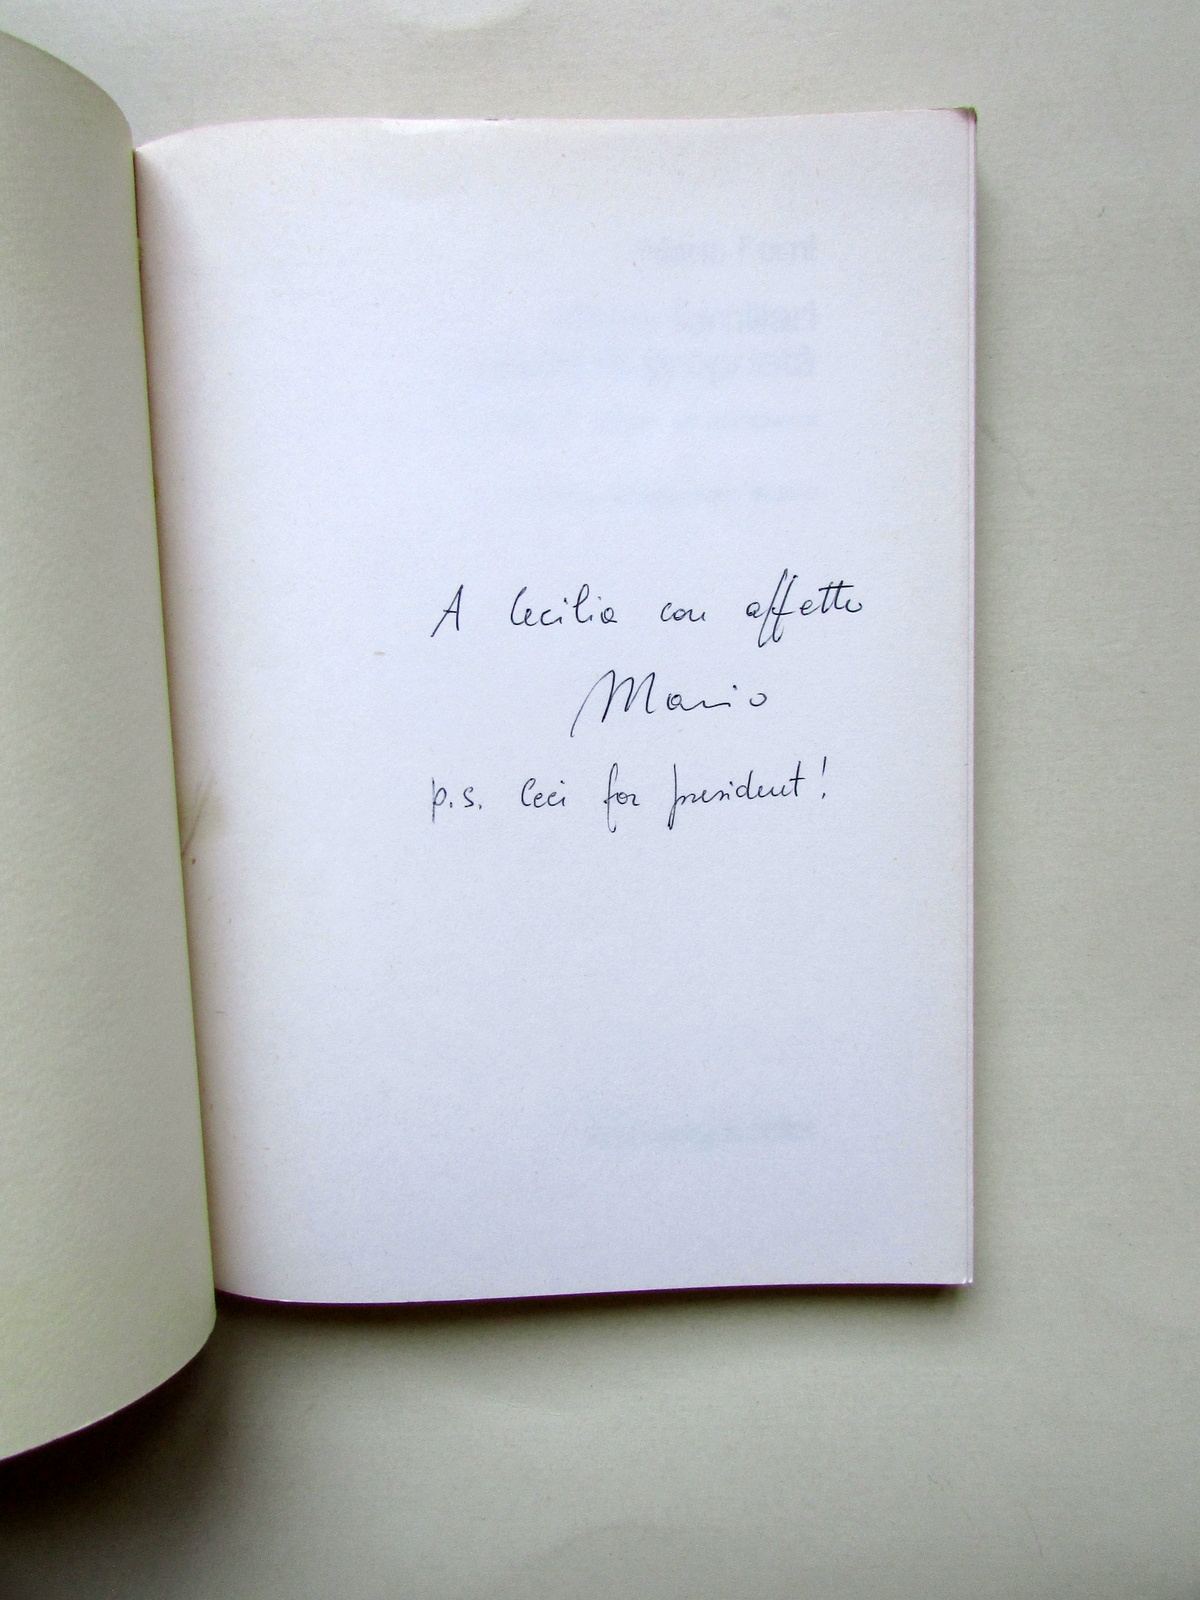 A Cecilia con affetto
Mario
p.s. Ceci for president!